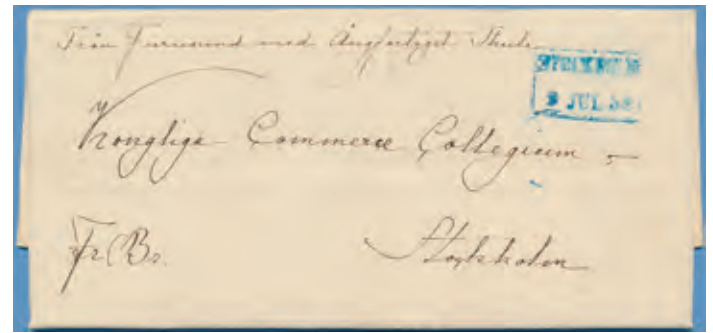 Från Furusund med Ångfartyget Thule
STOCKHOLM
9 JUL 58
Konglige Commerce Collegium
Fr. Br.
Stockholm